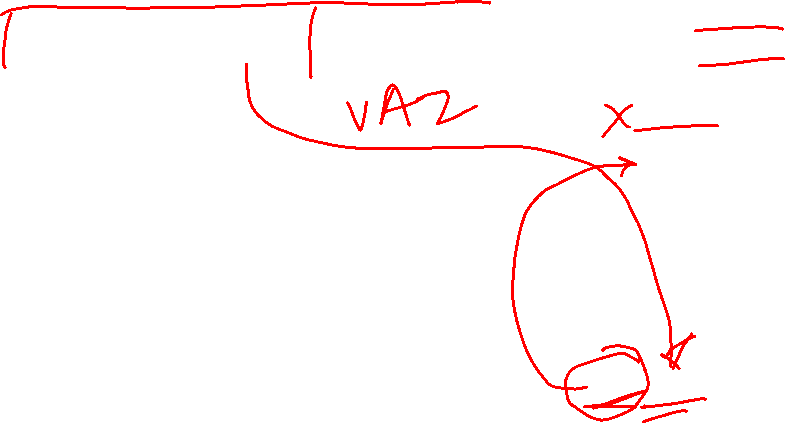 VAZ
X